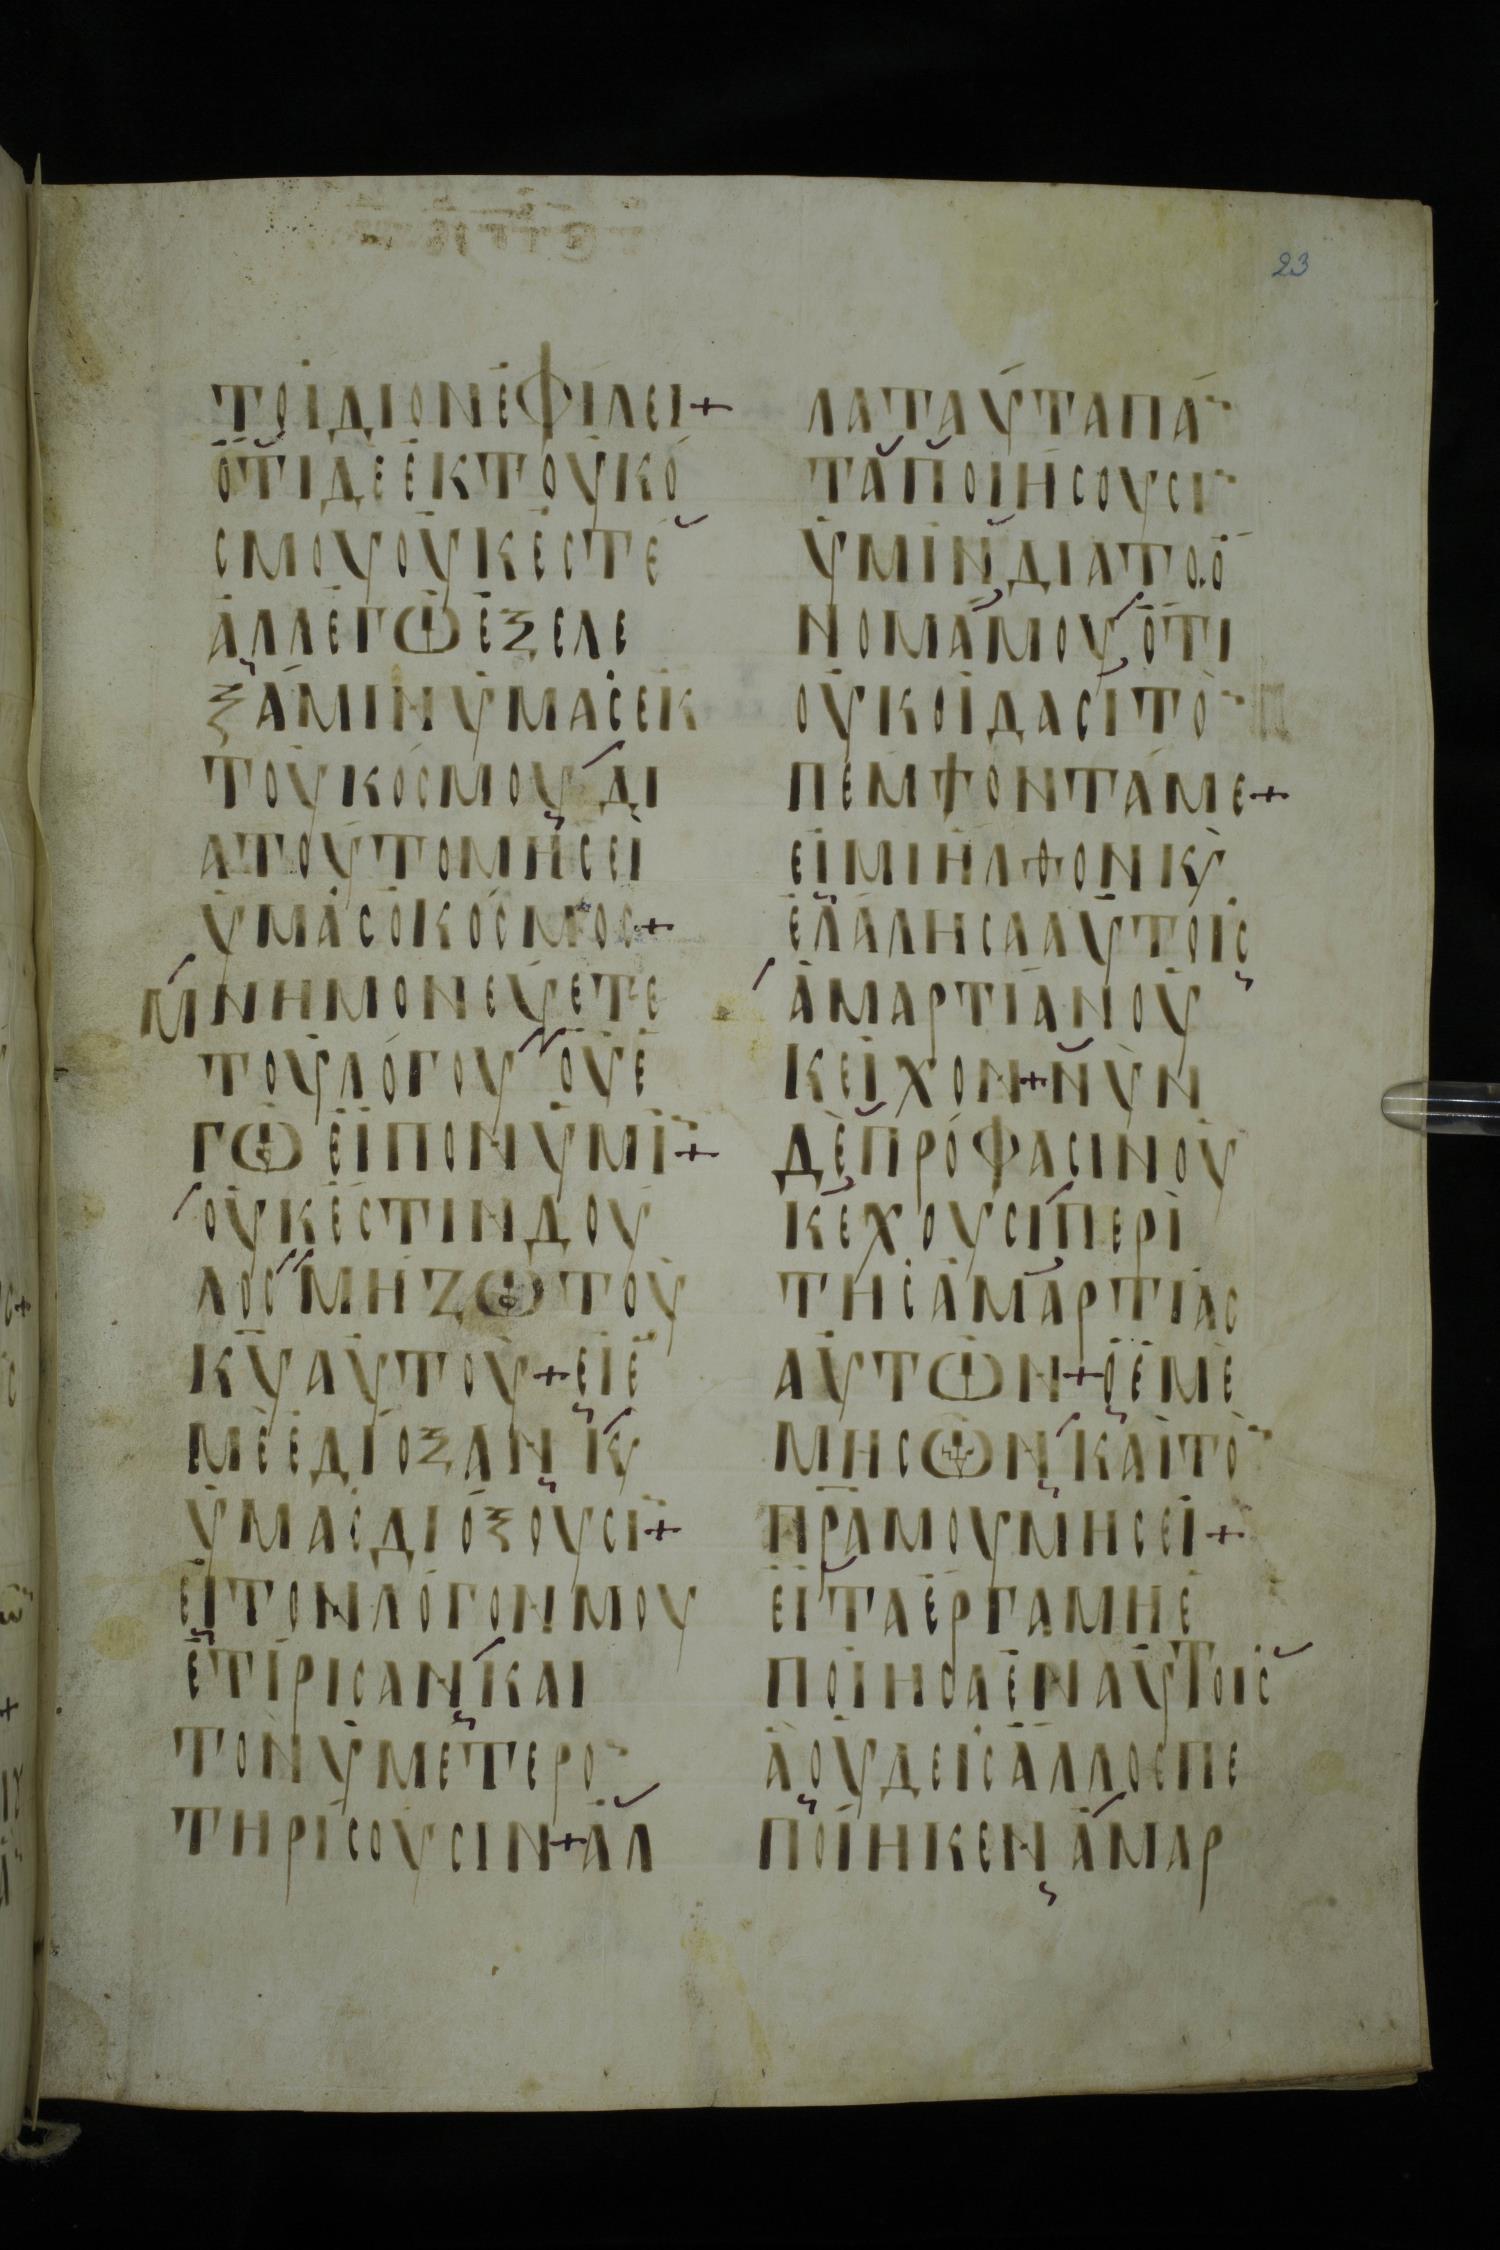 23
ΤΟΙΔΙΟΝΕΦΙΛΕΙ+
ΟΤΙΔΕΕΚΤΟΥΚΟ
ΣΜΟΥΟΥΚΕΣΤΕ
ΑΛΛΕΓΩΕΞΕΛΕ
ΞΑΜΙΝΥΜΑΣΕΚ
ΤΟΥΚΟΣΜΟΥΔΙ
ΑΤΟΥΤΟΜΗΣΕΙ
ΥΜΑΣΟΚΟΣΜΟΣ+
ΜΝΗΜΟΝΕΥΕΤΕ
ΤΟΥΛΟΓΟΥΟΥΕ
ΓΩΕΙΠΟΝΥΜΙ+
ΟΥΚΕΣΤΙΝΔΟΥ
ΛΟΣΜΗΖΩΤΟΥ
ΚΥΑΥΤΟΥ+ΕΙΕ
ΜΕΕΔΙΟΞΑΝΚ
ΥΜΑΣΔΙΟΞΟΥΣΙ+
ΕΙΤΟΝΛΟΓΟΝΜΟΥ
ΕΤΙΡΙΣΑΝΚΑΙ
ΤΟΝΥΜΕΤΕΡΟ
ΤΗΡΙΣΟΥΣΙΝ+ΑΛ
ΛΑΤΑΥΤΑΠΑ
ΤΑΠΟΙΗΣΟΥΣΙ
ΥΜΙΝΔΙΑΤΟΟ
ΝΟΜΑΜΟΥΟΤΙ
ΟΥΚΟΙΔΑΣΙΤΟ
ΠΕΜΨΟΝΤΑΜΕ+
ΕΙΜΙΗΛΦΟΝΚΥ
ΕΛΑΛΗΣΑΑΥΤΟΙΣ
ΑΜΑΡΤΙΑΝΟΥ
ΚΕΙΧΟΝ+ΝΥΝ
ΔΕΠΡΟΦΑΣΙΝΟΥ
ΚΕΧΟΥΣΙΠΕΡΙ
ΤΗΣΑΜΑΡΤΙΑΣ
ΑΥΤΩΝ+ΟΕΜΕ
ΜΗΣΩΝΚΑΙΤΟ
ΠΡΑΜΟΥΜΗΣΕΙ+
ΕΙΤΑΕΡΓΑΜΗΕ
ΠΟΙΗΣΑΕΝΑΥΤΟΙΣ
ΑΟΥΔΕΙΣΑΛΛΟΣΠΕ
ΠΟΙΗΚΕΝΑΜΑΡ